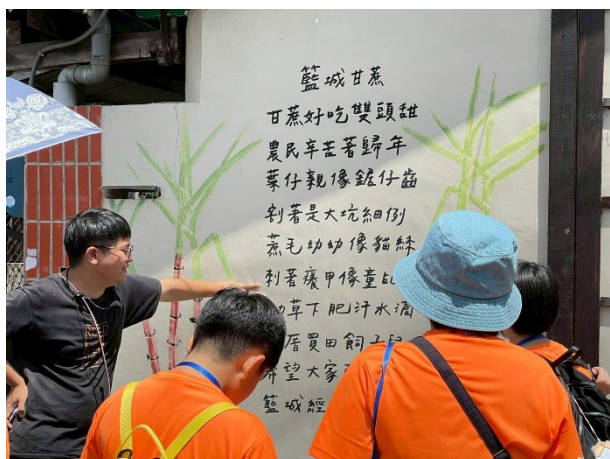 籃城甘蔗
甘蔗好吃雙頭甜
農民辛苦著歸年
葉仔親像鋸仔齒
割著是大坑細例
蔗毛幼幼像貓絲
刺著癢甲像童乩
草下肥汗水滴
厝買田飼子
希望大家
籃城經